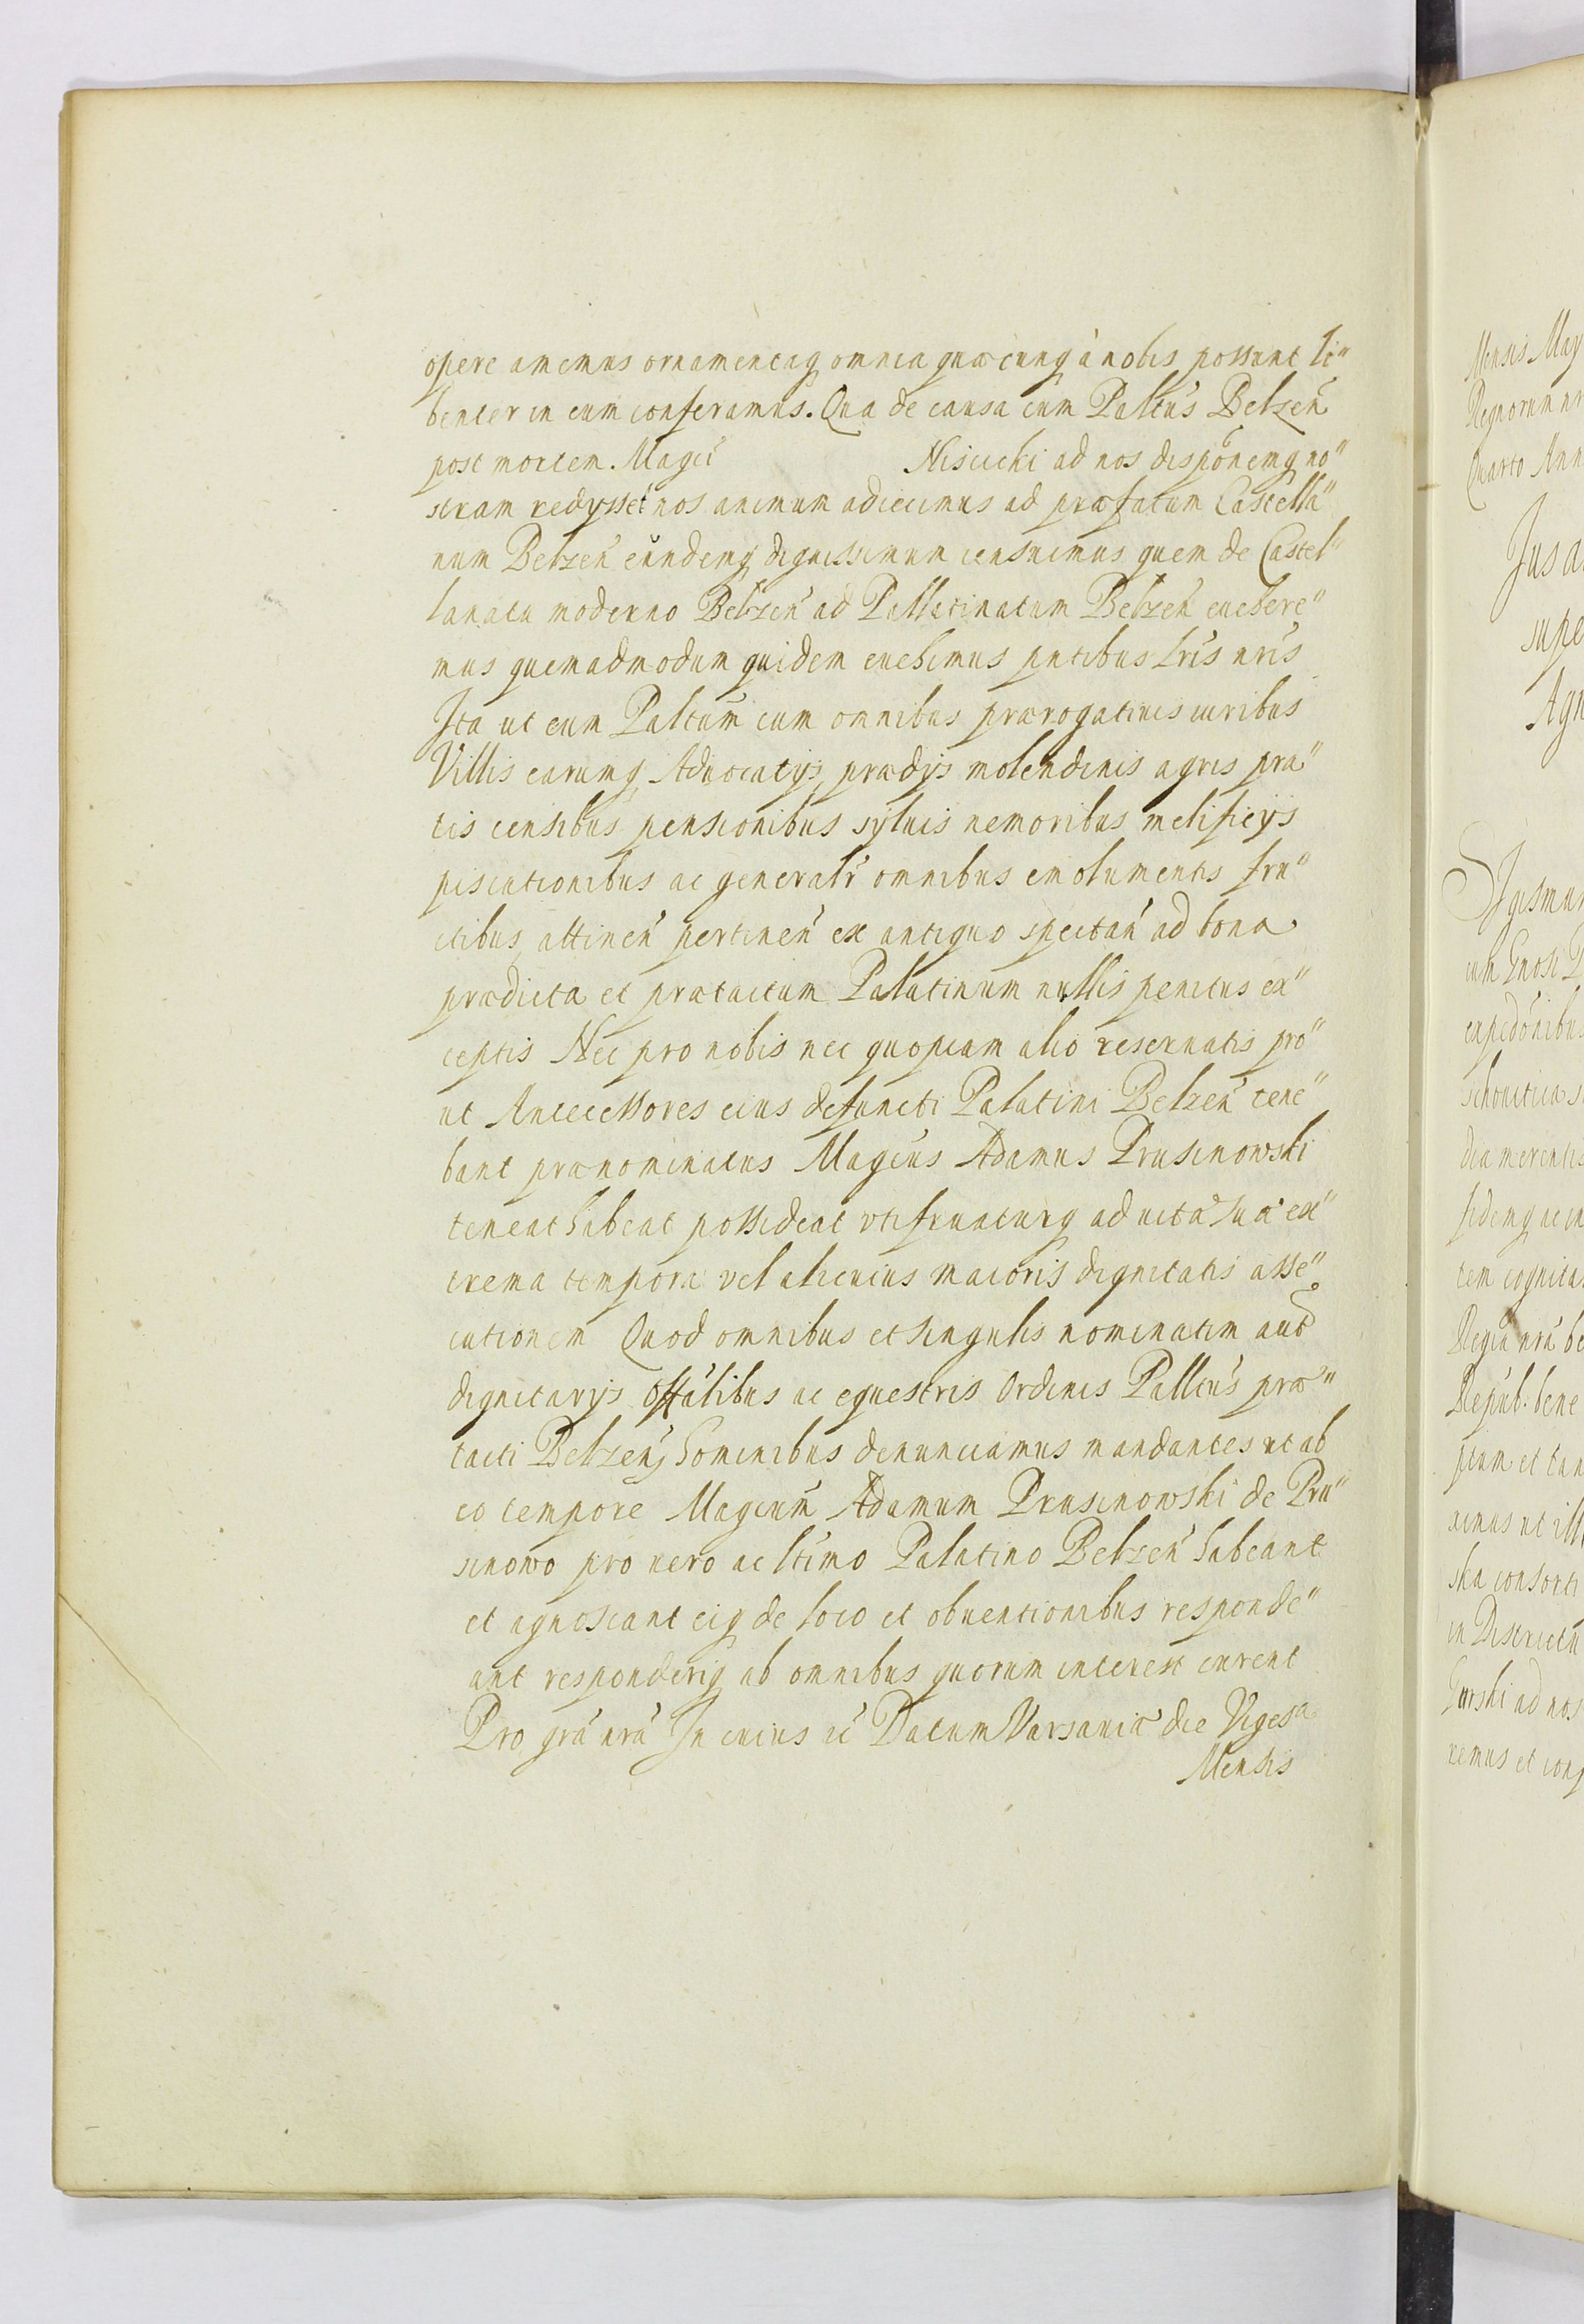 opere amemus ornamentaq omnia quæcunq à nobis possunt li"
benter in eum conferamus. Qua de causa cum Paltus Belzen
post mortem Magci Nisicki ad nos disponemq no"
stram redysset nos animum adiecimus ad præfatum Castella"
num Belzen eundemq dignissimum censuimus quem de Castel"
lanatu moderno Belzen ad Pallatinatum Belzen euehere"
mus quemadmodum quidem euehimus pntibus lris nris
Ita ut eum Paltum cum omnibus prærogatiuis iuribus
Villis earumq Aduocatijs, prædijs molendinis agris pra"
tis censibus pensionibus syluis nemoribus melificijs
piscationibus ac generalr omnibus emolumentis fru"
ctibus, attinen pertinen ex antiquo spectan ad bona
prædicta et prætactum Palatinum nullis penitus ex"
ceptis Nec pro nobis nec quopiam alio reseruatis pro"
ut Antecessores eius defuncti Palatini Belzen tene"
bant prænominatus Magcus Adamus Prusinowski
teneat habeat possideat vtifruaturq ad uitæ suæ ex"
trema tempora vel alicuius maioris dignitatis asse"
cutionem Quod omnibus et singulis nominatim aut
dignitarijs offalibus ac equestris Ordinis Palltus præ"
tacti Belzen, hominibus denunciamus mandantes ut ab
eo tempore Magcum Adamum Prusinowski de Pru"
sinowo pro uero ac ltimo Palatino Belzen habeant
et agnoscant eiq de loco et obuentionibus responde"
ant responderiq ab omnibus quorum interest curent
Pro gra nra In cuius rei Datum Varsauiæ die Viges&ordf;
Mensis
Mensis May
Regnorum nr
Quarto Ann
Jus a
supe
Agn
SJgismun
expedonibu
dia merentis
fidemq ac in
tem cognita
Regia nra be
Repub. bene
ptum et tan
ximus ut ill
ska consorti
in Districtu
Gorski ad nos
remus et conf